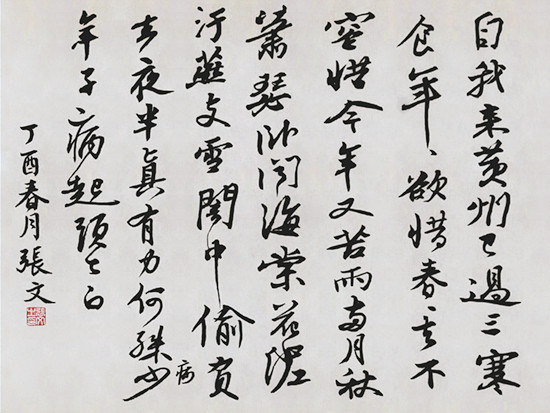 自我来黄州已過三寒
食年々欲惜春々去不
容惜今年又苦雨兩月秋
蕭瑟卧聞海棠花泥
汙燕支雪闇中偷負
去夜半真有力何殊少
病
年子病起頭已白
丁酉春月張文